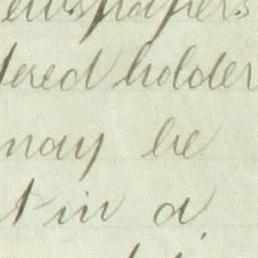 ewspapers
tered holder
may be
t in a